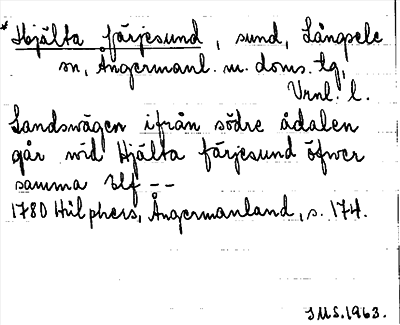 * Hjälta färjesund, sund, Långsele
sn, Ångermanl. m. doms. tg,
Vrnl. l.
Landswägen ifrån södre ådalen
går wid Hjälta färjesund öfwer
samma Elf --
1780 Hülphers, Ångermanland, s. 174.
SMS. 1963.